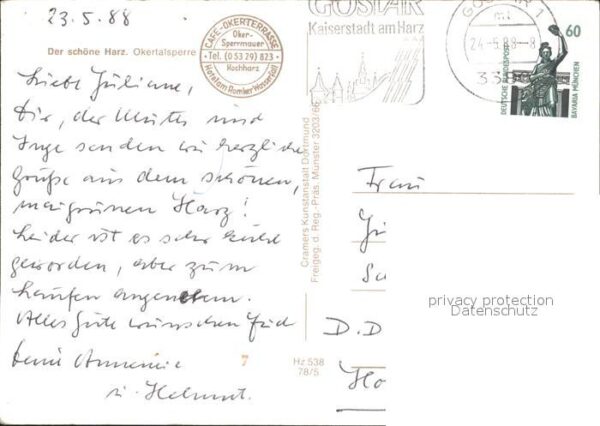 23.5.88
Der schöne Harz. Okertalsperre
CAFE-OKERTERRASSE
Oker-
Sperrmauer
Tel. (0 53 29) 823
Hochharz
Hotel am Romker Wasserfall
GOSLAR
Kaiserstadt am Harz
GOSLAR 1
mt
24.-5.88-8
338
60
DEUTSCHE BUNDESPOST
BAVARIA MÜNCHEN
Liebe Juliane,
Dir, der Mutter und
Inge senden wir herzliche
Grüße aus dem schönen,
maigrünen Harz!
Leider ist es sehr kühl
geworden, aber zum
Laufen angenehm.
Alles Gute wünschen Euch
Annemie
u. Helmut.
Cramers Kunstanstalt Dortmund
Freigeg. d. Reg.-Präs. Münster 3203/66
7
Hz 538
78/5
Frau
D.D
Ho
privacy protection
Datenschutz